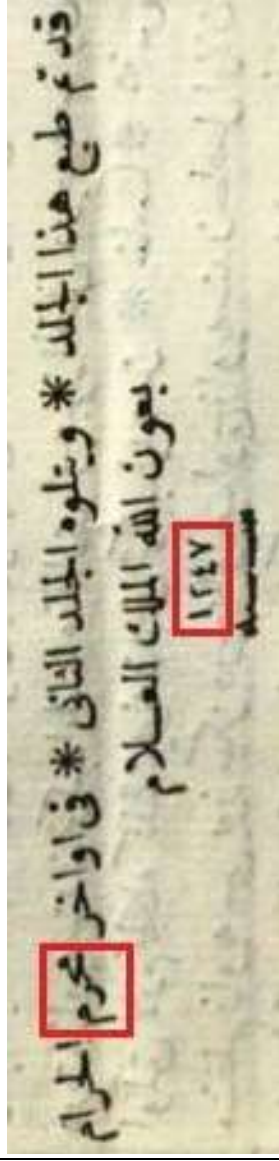 قد تم طبع هذا الجلد * ويتلوه الجلد الثانى * فى اواخر محرم الحرام
بعون الله الملك العلام
سنة
١٢٤٧